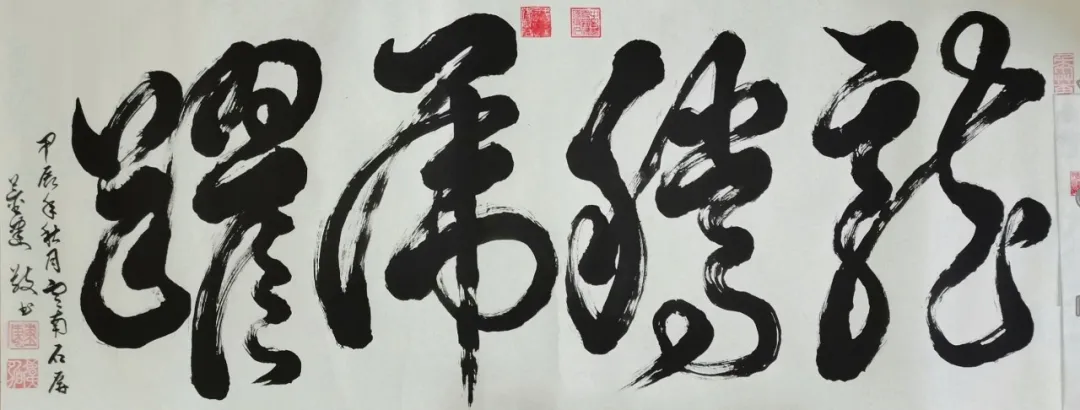 龍騰虎躍
甲辰年秋月雲南石屏
敬书